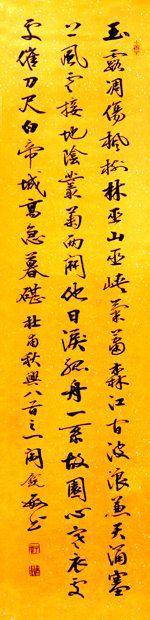 玉露凋傷楓樹林巫山巫峽氣蕭森江間波浪兼天涌塞
上風雲接地陰叢菊兩開他日淚孤舟一系故園心寒衣處
處催刀尺白帝城高急暮砧杜甫秋興八首之一